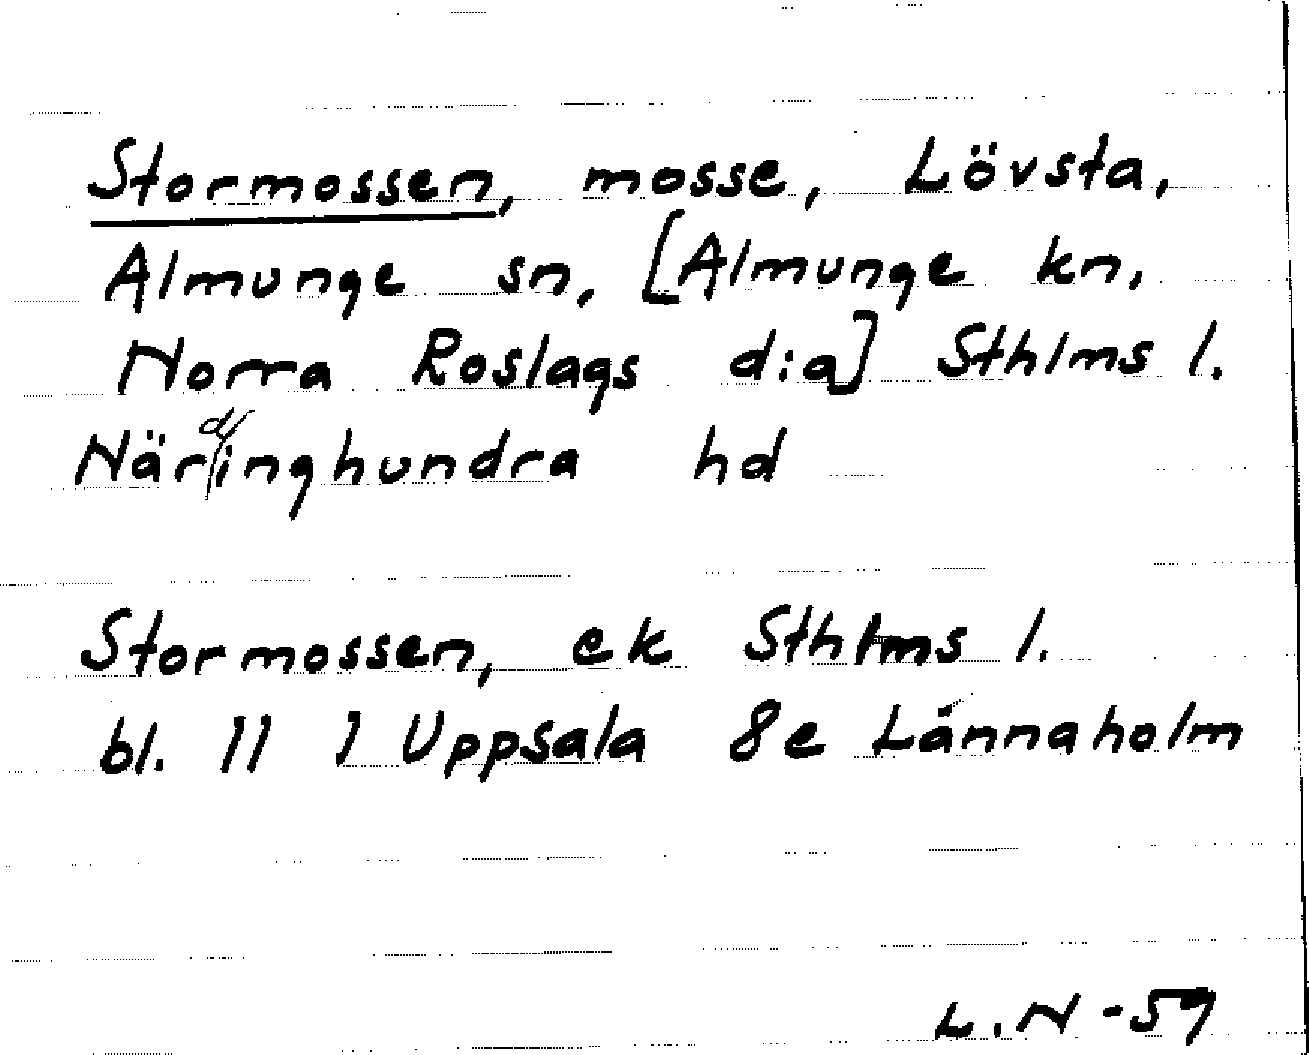 Stormossen, mosse, Lövsta,
Almunge sn, [Almunge kn,
Norra Roslags d:a] Sthlms l.
Närdinghundra hd
Stormossen, ek Sthlms l.
bl. 11 I Uppsala 8e Lännaholm
L.N -59